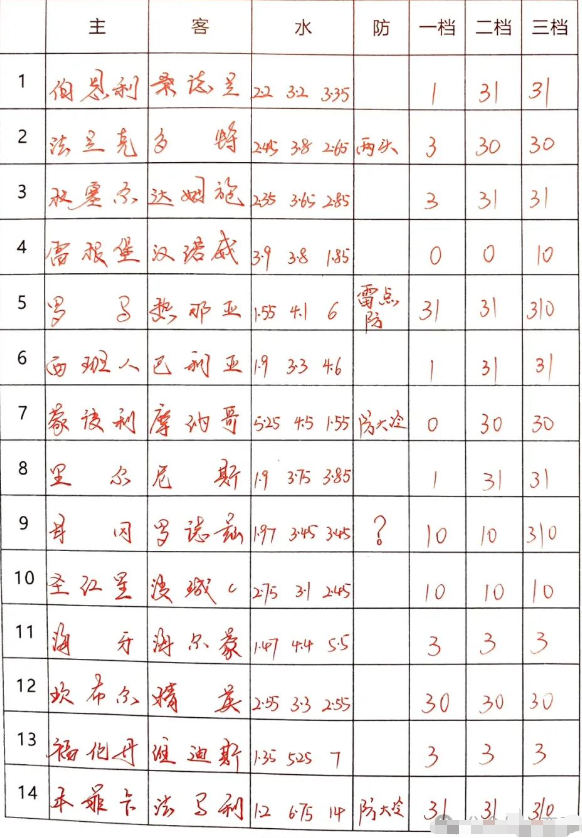 主 客 水 防 一档 二档 三档
1 伯恩利 桑德兰 2.2 3.2 3.35 1 31 31
2 法兰克 多特 2.45 3.8 2.65 两头 3 30 30
3 杜塞尔 达姆施 2.35 3.65 2.85 3 31 31
4 雷根堡 汉诺威 3.9 3.8 1.85 0 0 10
5 罗马 热那亚 1.55 4.1 6 雷点防 31 31 310
6 西班人 巴利亚 1.9 3.3 4.6 1 31 31
7 蒙彼利 摩纳哥 5.25 4.5 1.55 防大冷 0 30 30
8 里尔 尼斯 1.9 3.75 3.85 1 31 31
9 罗德兹 1.97 3.45 3.45 ? 10 10 310
10 圣红星 波城 2.75 3.1 2.45 10 10 10
11 海牙 海尔蒙 1.47 4.4 5.5 3 3 3
12 坎布尔 精英 2.55 3.3 2.55 30 30 30
13 福伦丹 维迪斯 1.35 5.25 7 3 3 3
14 本菲卡 法马利 1.2 6.75 14 防大冷 31 31 310